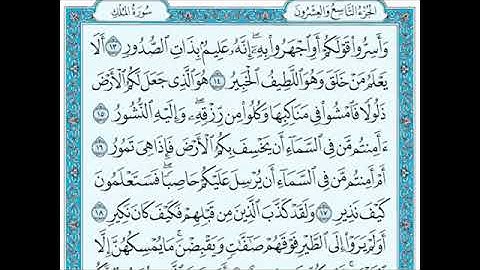 سُورَةُ المُلْكِ
الجُزْءُ التَّاسِعُ وَالعِشْرُونَ
وَأَسِرُّوا۟ قَوْلَكُمْ أَوِ ٱجْهَرُوا۟ بِهِۦٓ ۖ إِنَّهُۥ عَلِيمٌۢ بِذَاتِ ٱلصُّدُورِ ١٣ أَلَا
يَعْلَمُ مَنْ خَلَقَ وَهُوَ ٱللَّطِيفُ ٱلْخَبِيرُ ١٤ هُوَ ٱلَّذِى جَعَلَ لَكُمُ ٱلْأَرْضَ
ذَلُولًا فَٱمْشُوا۟ فِى مَنَاكِبِهَا وَكُلُوا۟ مِن رِّزْقِهِۦ ۖ وَإِلَيْهِ ٱلنُّشُورُ ١٥
ءَأَمِنتُم مَّن فِى ٱلسَّمَآءِ أَن يَخْسِفَ بِكُمُ ٱلْأَرْضَ فَإِذَا هِىَ تَمُورُ ١٦
أَمْ أَمِنتُم مَّن فِى ٱلسَّمَآءِ أَن يُرْسِلَ عَلَيْكُمْ حَاصِبًا ۖ فَسَتَعْلَمُونَ
كَيْفَ نَذِيرِ ١٧ وَلَقَدْ كَذَّبَ ٱلَّذِينَ مِن قَبْلِهِمْ فَكَيْفَ كَانَ نَكِيرِ ١٨
أَوَلَمْ يَرَوْا۟ إِلَى ٱلطَّيْرِ فَوْقَهُمْ صَٰٓفَّٰتٍ وَيَقْبِضْنَ ۚ مَا يُمْسِكُهُنَّ إِلَّا